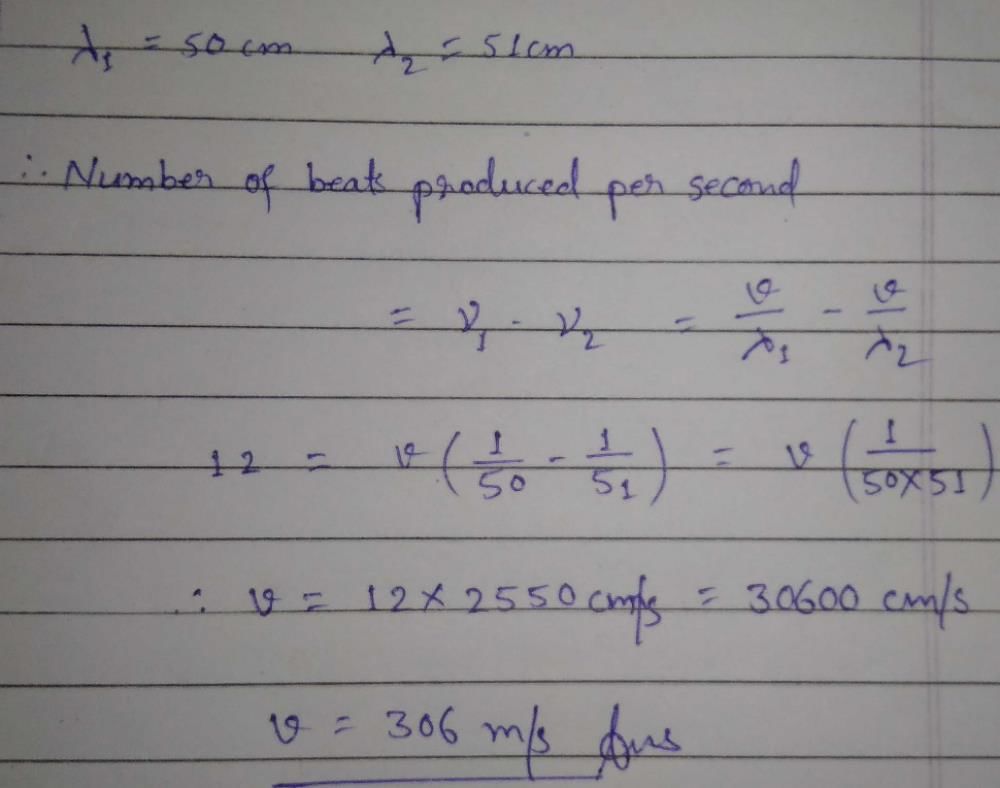 λ₁ = 50 cm λ₂ = 51 cm
∴ Number of beats produced per second
= ν₁ - ν₂ = v/λ₁ - v/λ₂
12 = v (1/50 - 1/51) = v (1/50×51)
∴ v = 12 × 2550 cm/s = 30600 cm/s
v = 306 m/s Ans